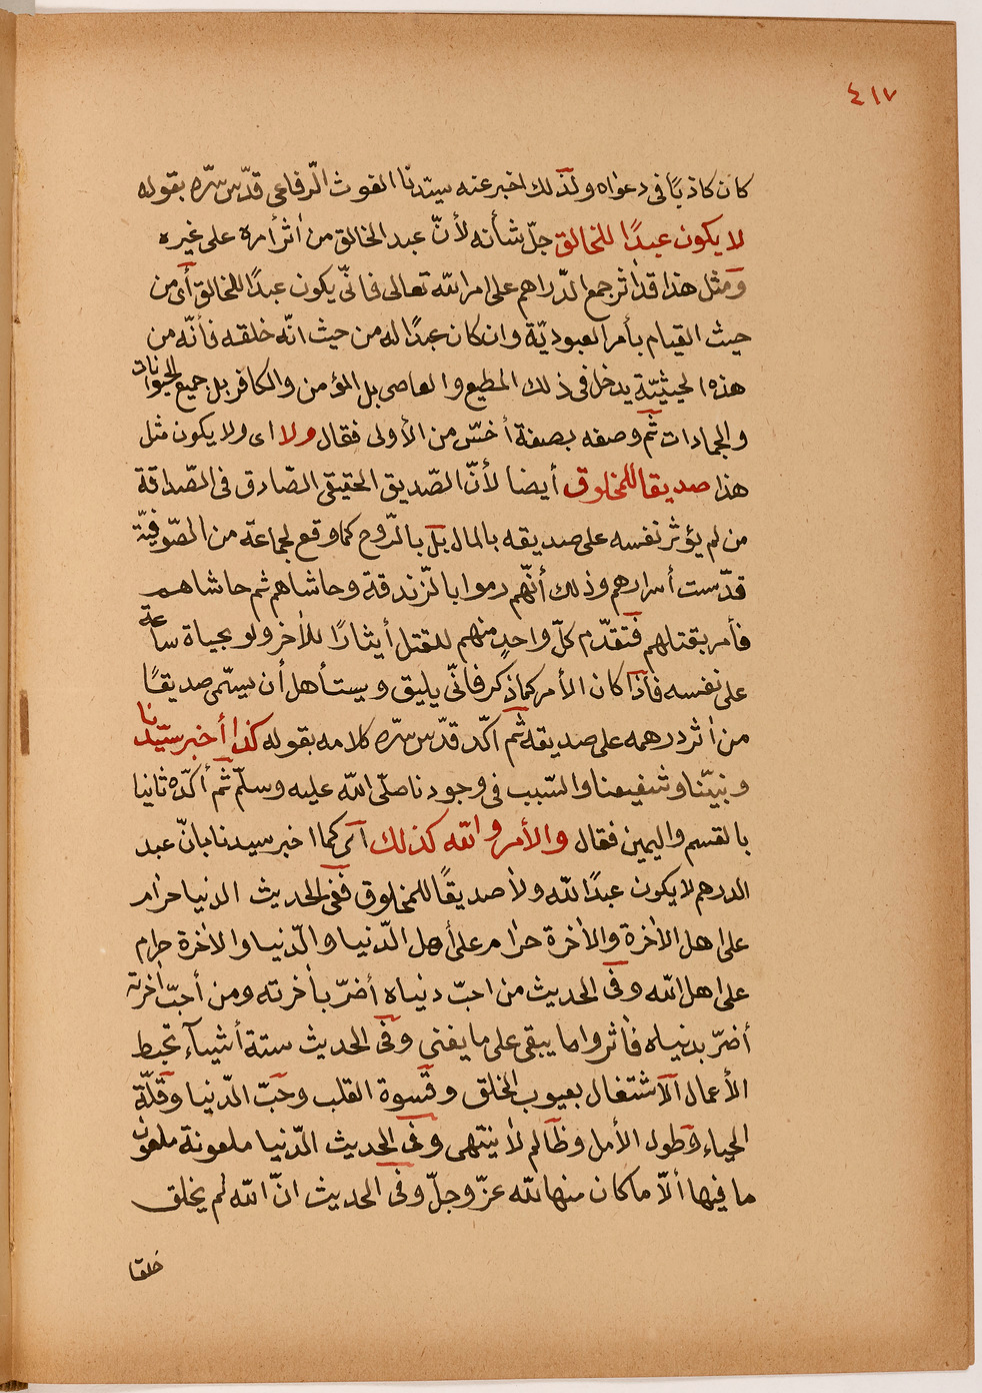 ٤١٧
كان كاذبًا في دعواه ولذلك اخبر عنه سيّدنا الغوث الرّفاعي قدّس سرّه بقوله
لا يكون عبدًا للخالق جلّ شأنه لأنّ عبد الخالق من اٰثر أمره على غيره
ومثل هذا قد اٰثر جمع الدّراهم على امر اللّه تعالى فانّى يكون عبدًا للخالق أى من
حيث القيام بأمر العبوديّة وان كان عبدًا له من حيث انّه خلقه فأنّه من
هذه الحيثيّة يدخل فى ذلك المطيع والعاصى بل المؤمن والكافر بل جميع الحيوانات
والجمادات ثمّ وصفه بصفة أخسّ من الأولى فقال ولا اى ولا يكون مثل
هذا صديقا للمخلوق أيضا لأنّ الصّديق الحقيقى الصّادق فى الصّداقة
من لم يؤثر نفسه على صديقه بالمال بل بالرّوح كما وقع لجماعة من الصّوفيّة
قدّست أسرارهم وذلك أنّهم رموا بالزّندقة وحاشاهم ثم حاشاهم
فأمر بقتلهم فتقدّم كلّ واحدٍ منهم للقتل أيثارًا للأخر ولو بحياة ساعة
على نفسه فأذا كان الأمر كما ذكر فانّى يليق ويستأهل أن يسمّى صديقًا
من اٰثر درهمه على صديقه ثمّ اكّد قدّس سرّه كلامه بقوله كذا أخبر سيّدنا
ونبيّنا وشفيعنا والسّبب فى وجودنا صلّى اللّه عليه وسلّم ثمّ أكّده ثانيا
بالقسم واليمين فقال والأمر واللّه كذلك اى كما اخبر سيدنا بانّ عبد
الدرهم لا يكون عبدًا للّه ولا صديقًا للمخلوق ففى الحديث الدنيا حرام
على اهل الاٰخرة والاٰخرة حرام على أهل الدّنيا والدّنيا والاٰخرة حرام
على اهل اللّه وفى الحديث من احبّ دنياه أضرّ بأخرته ومن أحبّ اٰخرته
أضرّ بدنياه فأثروا ما يبقى على ما يفنى وفى الحديث ستة أشيآء تحبط
الأعمال الاشتغال بعيوب الخلق وقسوة القلب وحبّ الدّنيا وقلّة
الحياء وطول الأمل وظالم لا ينتهى وفى الحديث الدّنيا ملعونة ملعون
ما فيها ألّا ما كان منها للّه عزّ وجلّ وفى الحديث انّ اللّه لم يخلق
خلقا